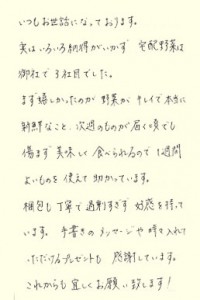 いつもお世話になっております。
実はいろいろ納得がいかず 宅配野菜は
御社で3社目でした。
まず嬉しかったのが 野菜が キレイで本当に
新鮮なこと。次週のものが届く頃でも
傷まず 美味しく食べられるので1週間
よいものを使えて助かっています。
梱包も丁寧で過剰すぎず 好感を持って
います。手書きのメッセージや時々入れて
いただけるプレゼントも 感謝しています。
これからも宜しくお願い致します!